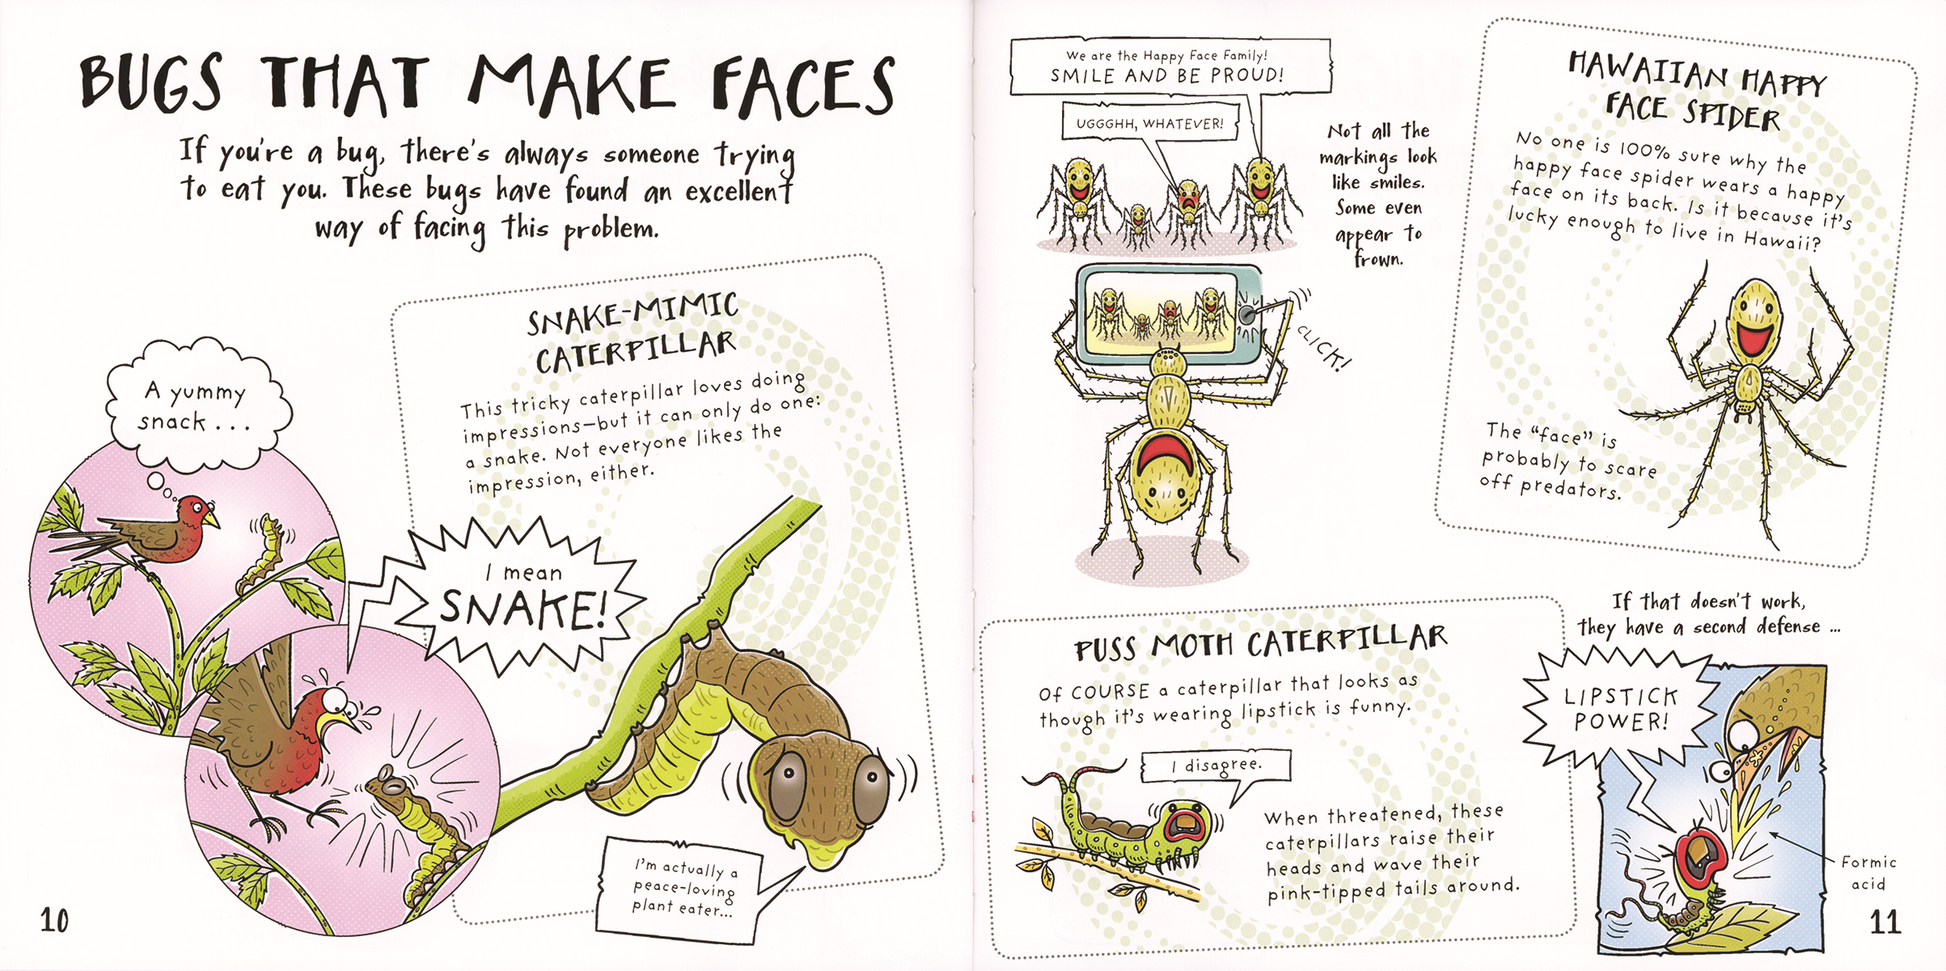 BUGS THAT MAKE FACES
If you're a bug, there's always someone trying
to eat you. These bugs have found an excellent
way of facing this problem.
A yummy
snack...
SNAKE-MIMIC
CATERPILLAR
This tricky caterpillar loves doing
impressions—but it can only do one:
a snake. Not everyone likes the
impression, either.
I mean
SNAKE!
I'm actually a
peace-loving
plant eater...
10
We are the Happy Face Family!
SMILE AND BE PROUD!
UGGGHH, WHATEVER!
Not all the
markings look
like smiles.
Some even
appear to
frown.
CLICK!
HAWAIIAN HAPPY
FACE SPIDER
No one is 100% sure why the
happy face spider wears a happy
face on its back. Is it because it's
lucky enough to live in Hawaii?
The "face" is
probably to scare
off predators.
PUSS MOTH CATERPILLAR
Of COURSE a caterpillar that looks as
though it's wearing lipstick is funny.
I disagree.
When threatened, these
caterpillars raise their
heads and wave their
pink-tipped tails around.
If that doesn't work,
they have a second defense ...
LIPSTICK
POWER!
Formic
acid
11